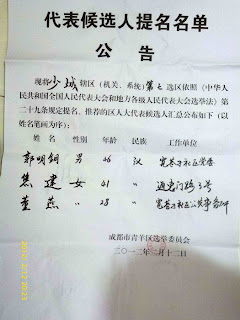 代表候选人提名名单
公 告
现将少城辖区(机关、系统)第七选区依照《中华人
民共和国全国人民代表大会和地方各级人民代表大会选举法》第
二十九条规定提名、推荐的区人大代表候选人汇总公布如下(以
姓名笔画为序):
姓名 性别 年龄 民族 工作单位
郭明钢 男 46 汉 宽巷子社区党委
焦建 女 61 〃
董燕 〃 28 〃 宽巷子社区公共事务
成都市青羊区选举委员会
二〇一二年二月十二日